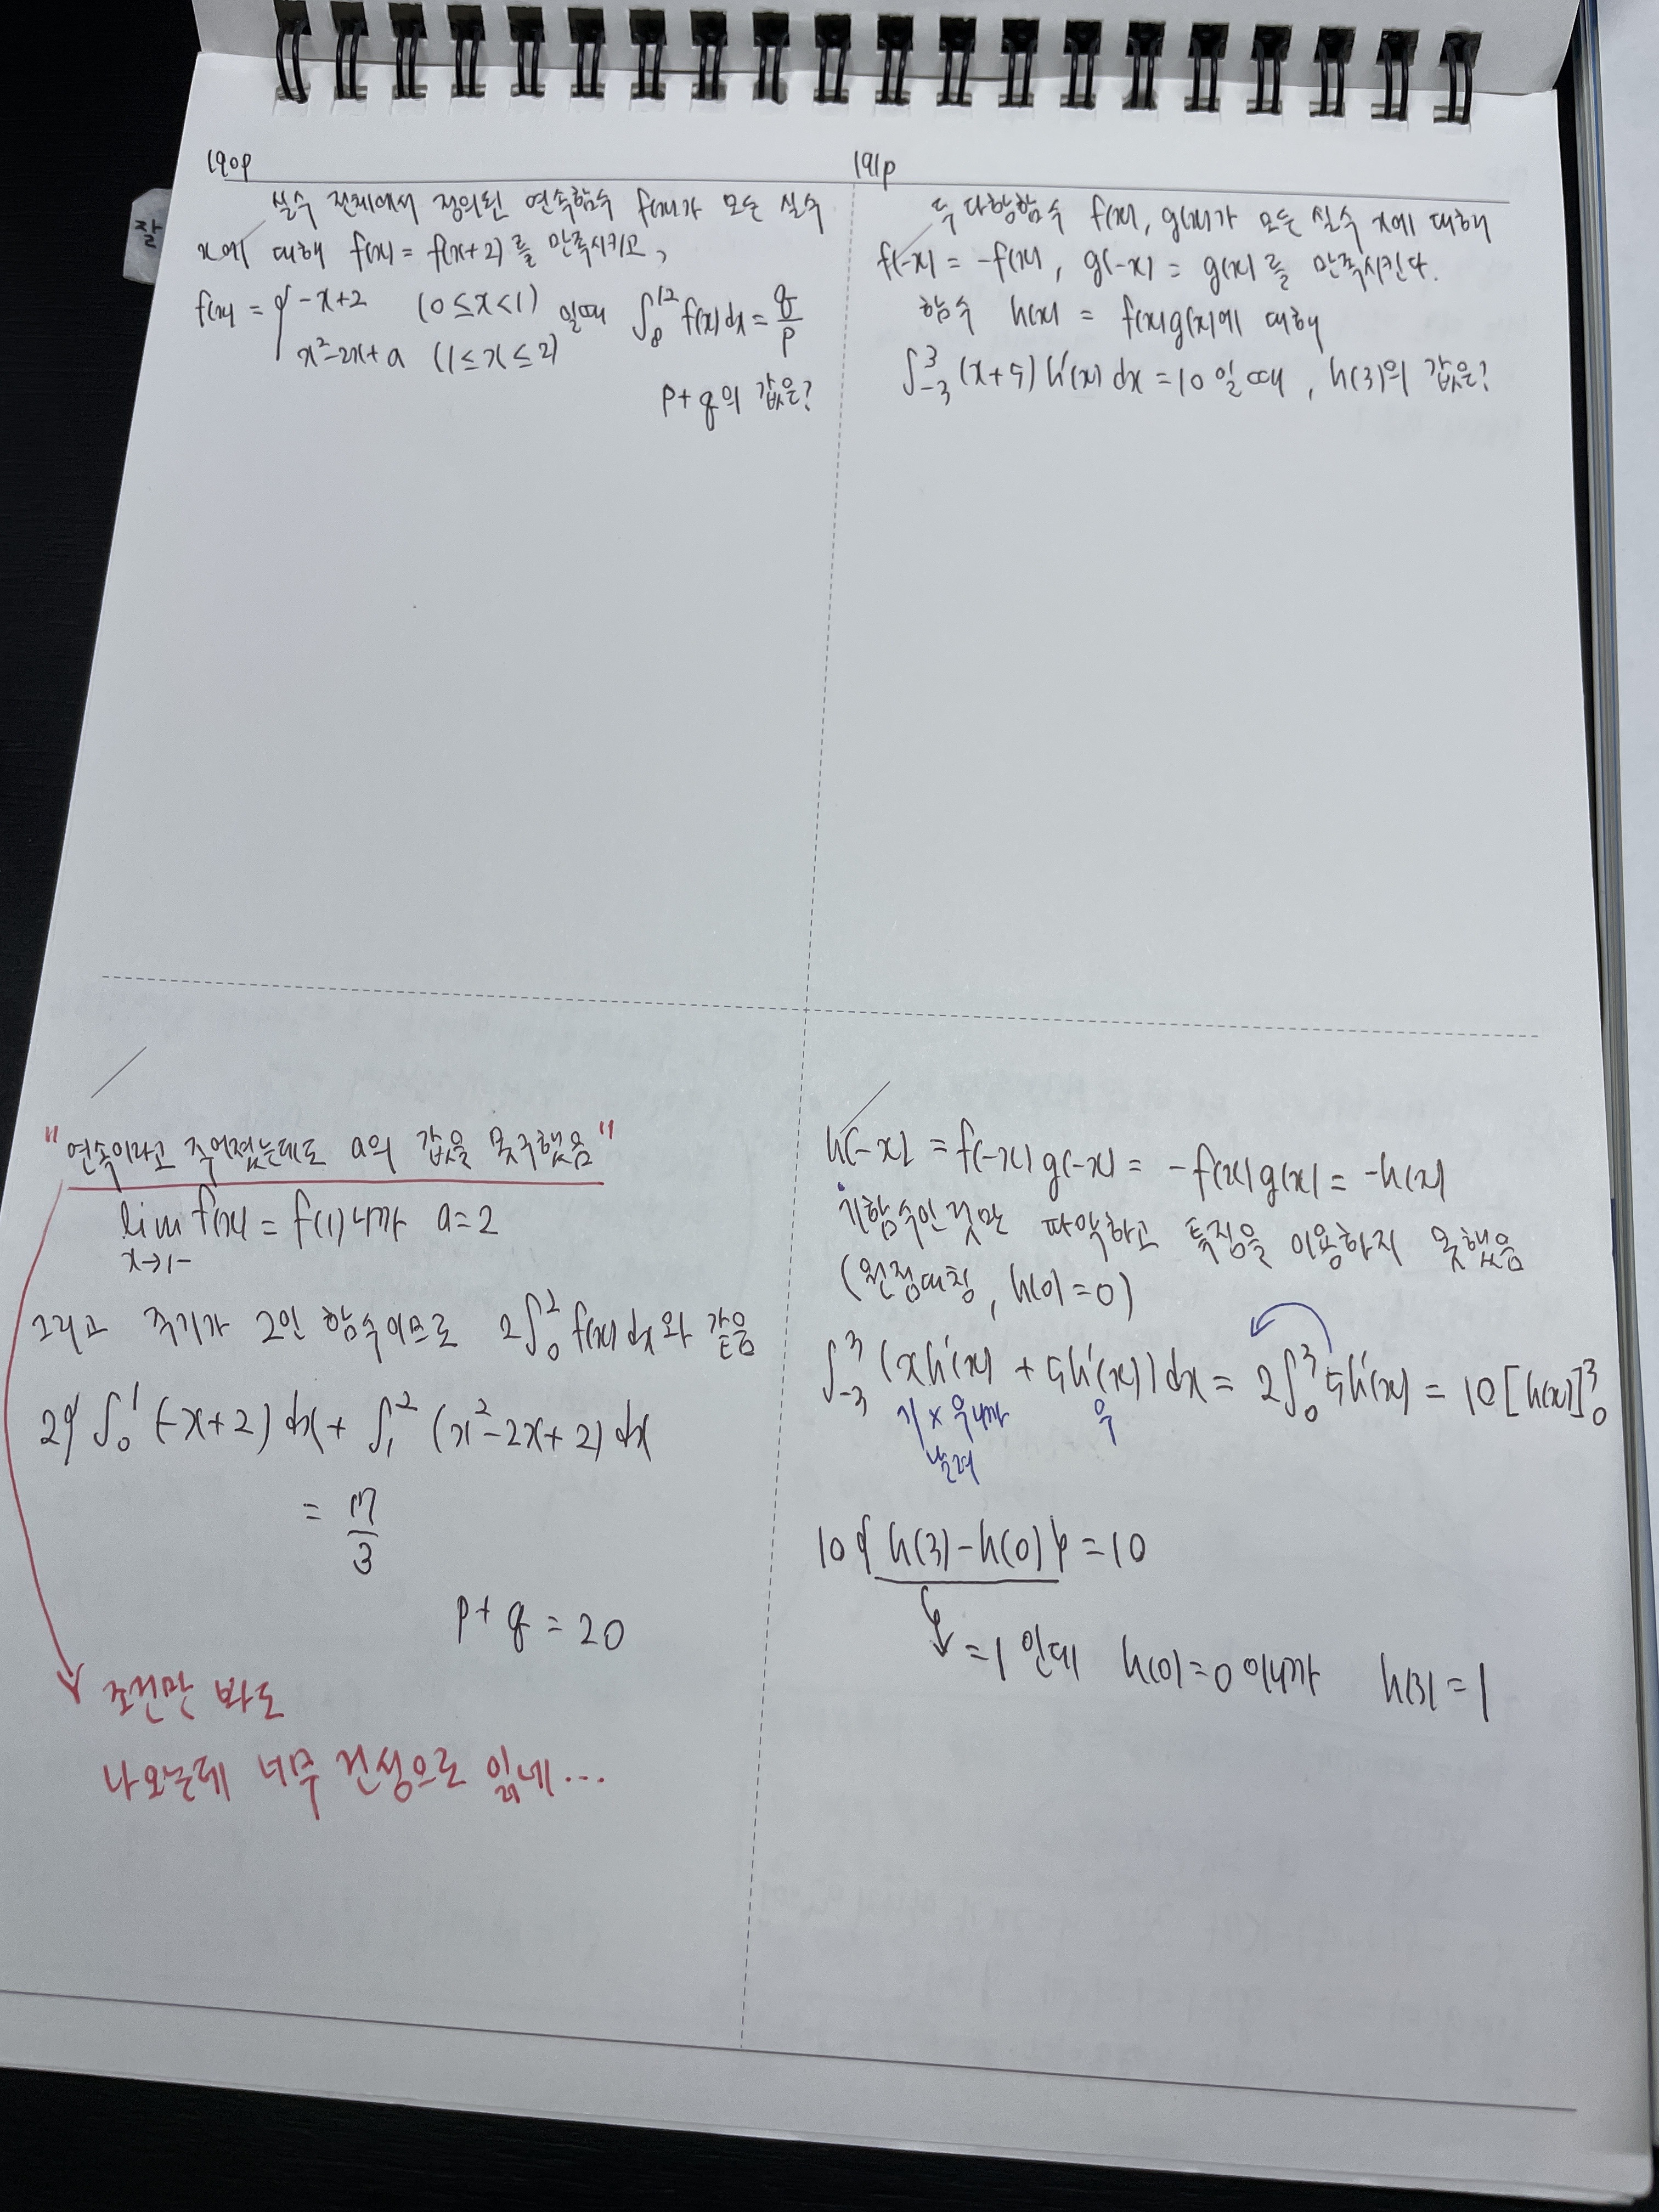 잘
190p
실수 전체에서 정의된 연속함수 f(x)가 모든 실수
x에 대해 f(x) = f(x+2)를 만족시키고,
f(x) = { -x+2 (0≤x<1)
x²-2x+a (1≤x≤2) 일때 ∫₈¹² f(x)dx = q/p
p+q의 값은?
191p
두 다항함수 f(x), g(x)가 모든 실수 x에 대해
f(-x) = -f(x), g(-x) = g(x)를 만족시킨다.
함수 h(x) = f(x)g(x)에 대해
∫₋₃³ (x+5)h'(x)dx = 10일 때, h(3)의 값은?
"연속이라고 주어졌는데도 a의 값을 못구했음"
lim f(x) = f(1)니까 a=2
x→1-
그리고 주기가 2인 함수이므로 2∫₀² f(x)dx와 같음
2{∫₀¹ (-x+2)dx + ∫₁² (x²-2x+2)dx
= 17/3
p+q = 20
조건만 봐도
나오는데 너무 건성으로 읽네...
h(-x) = f(-x)g(-x) = -f(x)g(x) = -h(x)
기함수인것만 파악하고 특징을 이용하지 못했음
(원점대칭, h(0)=0)
∫₋₃³ (xh'(x) + 5h'(x))dx = 2∫₀³ 5h'(x) = 10[h(x)]₀³
기×우니까 우
날려
10{h(3)-h(0)} = 10
=1 인데 h(0)=0이니까 h(3)=1